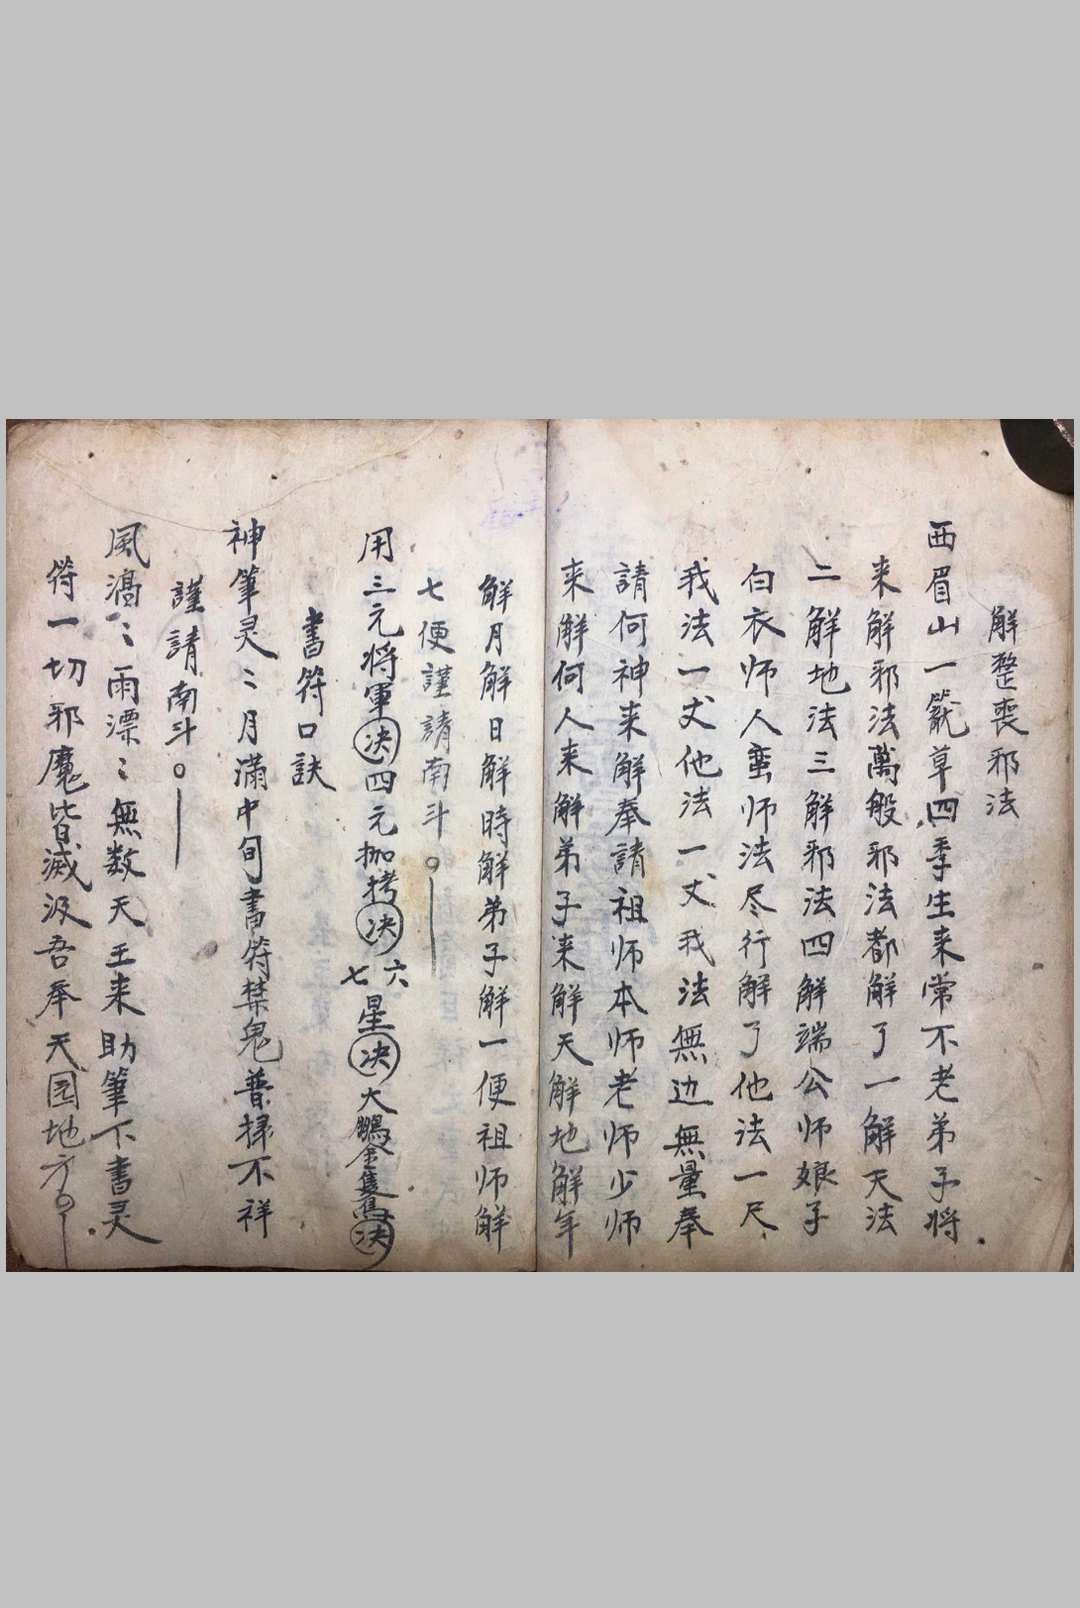 解整喪邪法
西眉山一籠草四季生来常不老弟子将
来解邪法萬般邪法都解了一解天法
二解地法三解邪法四解端公师娘子
白衣师人蛮师法尽行解了他法一尺
我法一丈他法一丈我法無边無量奉
請何神来解奉請祖师本师老师少师
来解何人来解弟子来解天解地解年
解月解日解時解弟子解一便祖师解
七便謹請南斗
用三元将軍决四元枷拷决六七星决大鵬金隻鳥决
書符口訣
神筆灵〻月满中旬書符禁鬼普掃不祥
謹請南斗
風滔〻雨漂〻無数天王来助筆下書灵
符一切邪魔皆滅汲吾奉天园地方